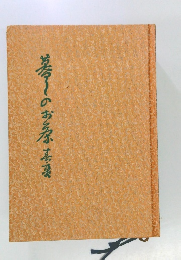 暮しのお茶